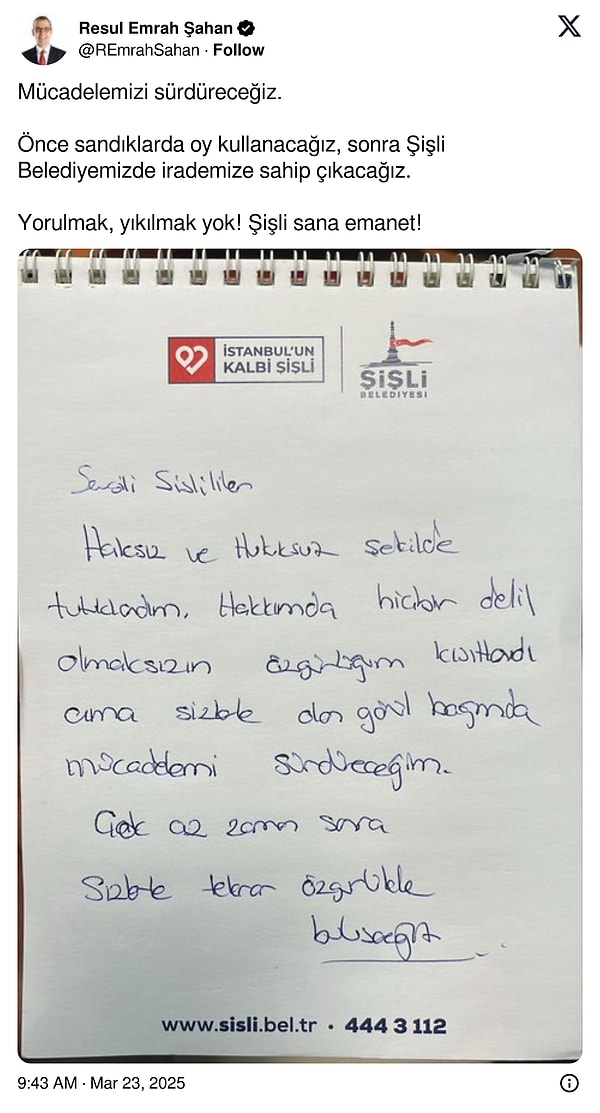 Resul Emrah Şahan
@REmrahSahan · Follow
Mücadelemizi sürdüreceğiz.
Önce sandıklarda oy kullanacağız, sonra Şişli
Belediyemizde irademize sahip çıkacağız.
Yorulmak, yıkılmak yok! Şişli sana emanet!
İSTANBUL'UN
KALBİ ŞİŞLİ
ŞİŞLİ
BELEDİYESİ
Sevgili Şişlililer
Haksız ve Hukuksuz şekilde
tutuklandım. Hakkımda hiçbir delil
olmaksızın özgürlüğüm kısıtlandı
ama sizlerle olan gönül bağımda
mücadelemi sürdüreceğim.
Çok az zaman sonra
Sizlerle tekrar özgürlükle
buluşacağız
www.sisli.bel.tr · 444 3 112
9:43 AM · Mar 23, 2025